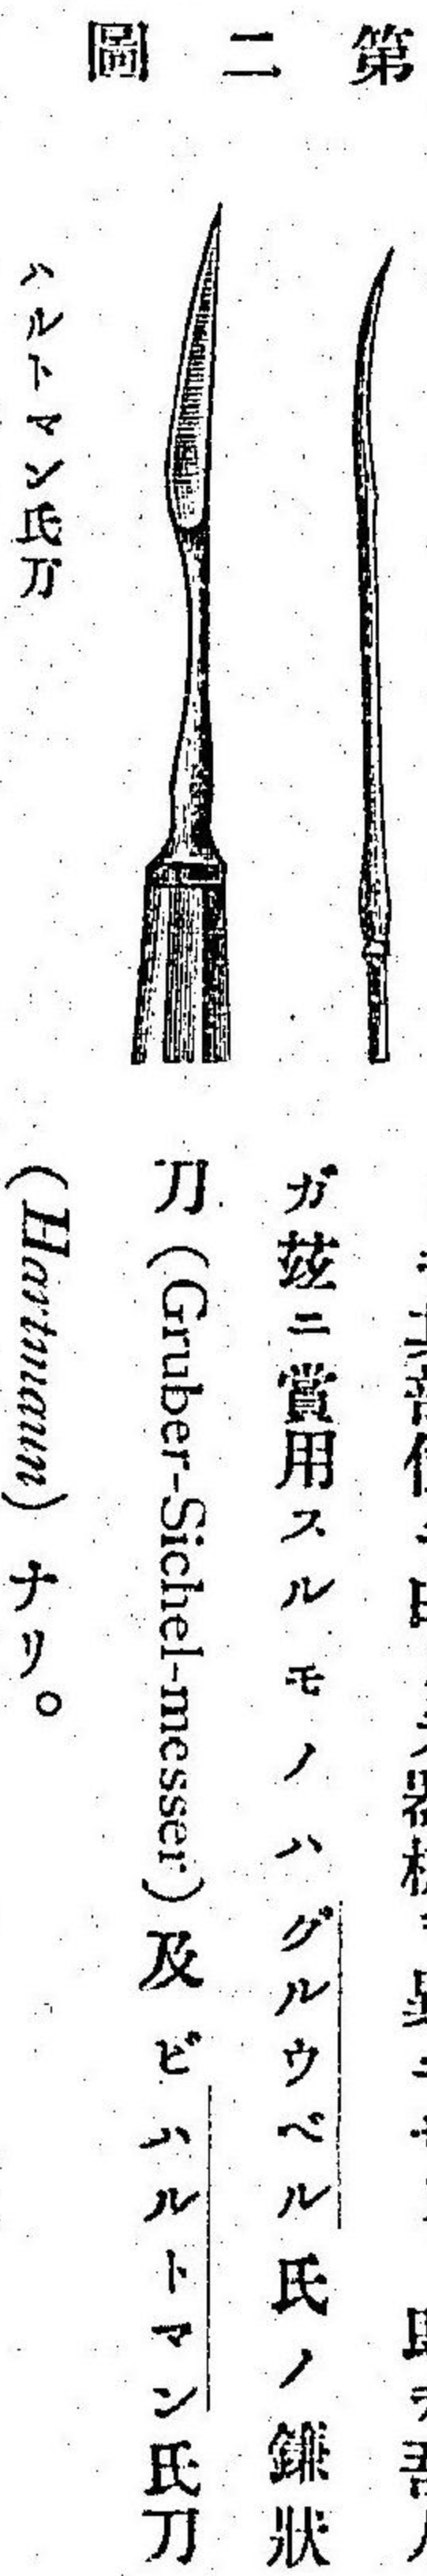 第二圖
ハルトマン氏刀
ガ茲ニ賞用スルモノハグルウベル氏ノ鎌狀
刀(Gruber-Sichel-messer)及ビハルトマン氏刀
(Hartmann)ナリ。